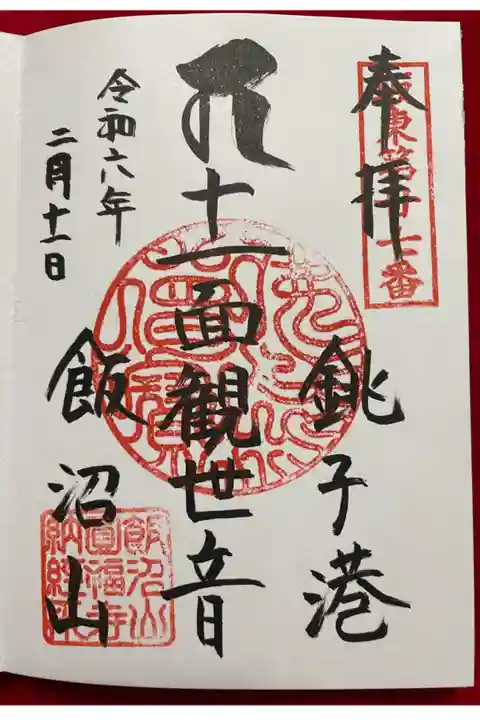 奉拝
坂東第廿七番
銚子港
十一面観世音
飯沼山
令和六年
二月十一日
飯沼山
圓福寺
納経印